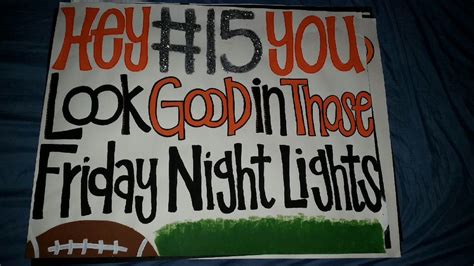 Hey #15 you
Look Good in Those
Friday Night Lights